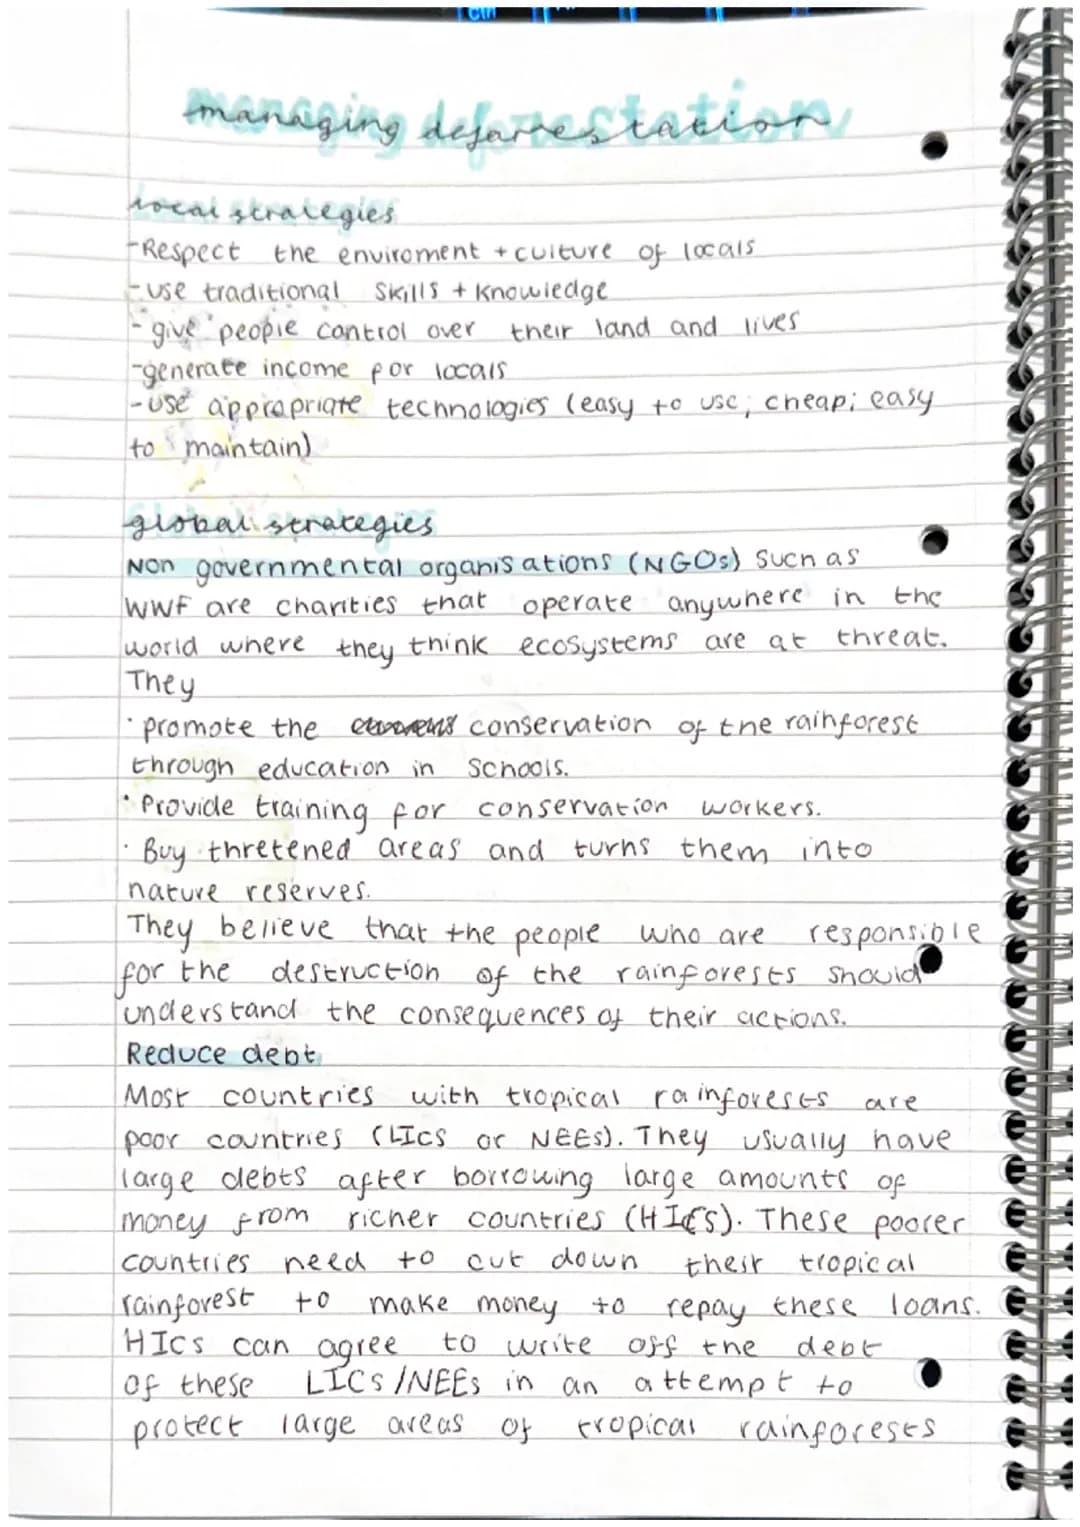 managing deforestation
local strategies
-Respect the enviroment + culture of locals
-use traditional skills + knowledge
-give people control over their land and lives
-generate income for locals
-use appropriate technologies (easy to use; cheap; easy
to maintain)
global strategies
Non governmental organisations (NGOs) such as
WWF are charities that operate anywhere in the
world where they think ecosystems are at threat.
They
· promote the conservation of the rainforest
through education in schools.
· Provide training for conservation workers.
· Buy thretened areas and turns them into
nature reserves.
They believe that the people who are responsible
for the destruction of the rainforests should
understand the consequences of their actions.
Reduce debt
Most countries with tropical rainforests are
poor countries (LICs or NEEs). They usually have
large debts after borrowing large amounts of
money from richer countries (HICs). These poorer
countries need to cut down their tropical
rainforest to make money to repay these loans.
HICs can agree to write off the debt
of these LICs/NEEs in an attempt to
protect large areas of tropical rainforests